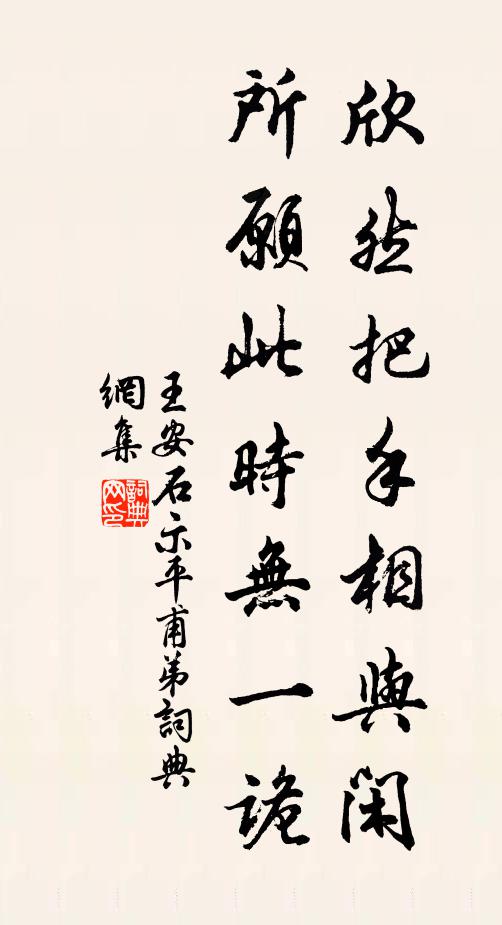 欣然把手相與閑
所願此時無一詭
王安石示平甫弟詞典
網集
詞典網印